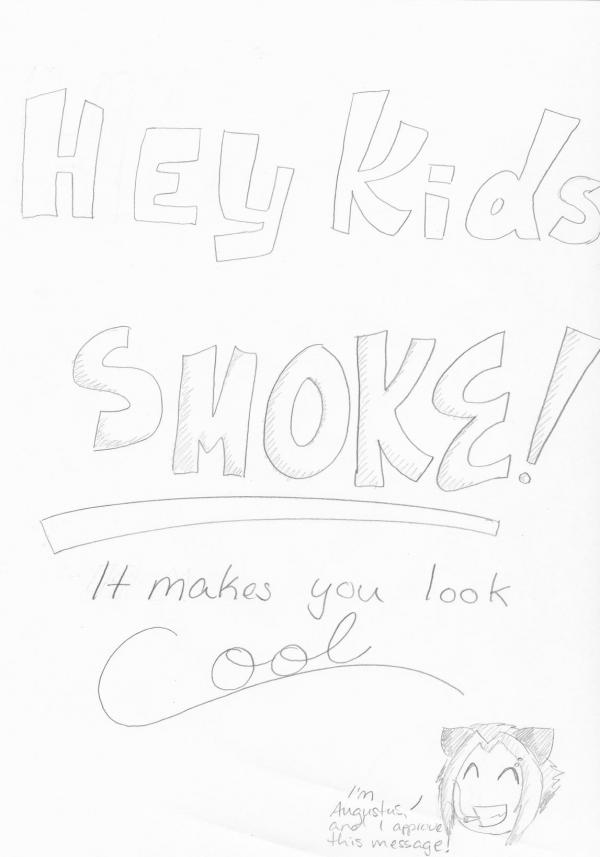 Hey Kids
SMOKE!
It makes you look
Cool
I'm
Augustus,
and I approve
this message!